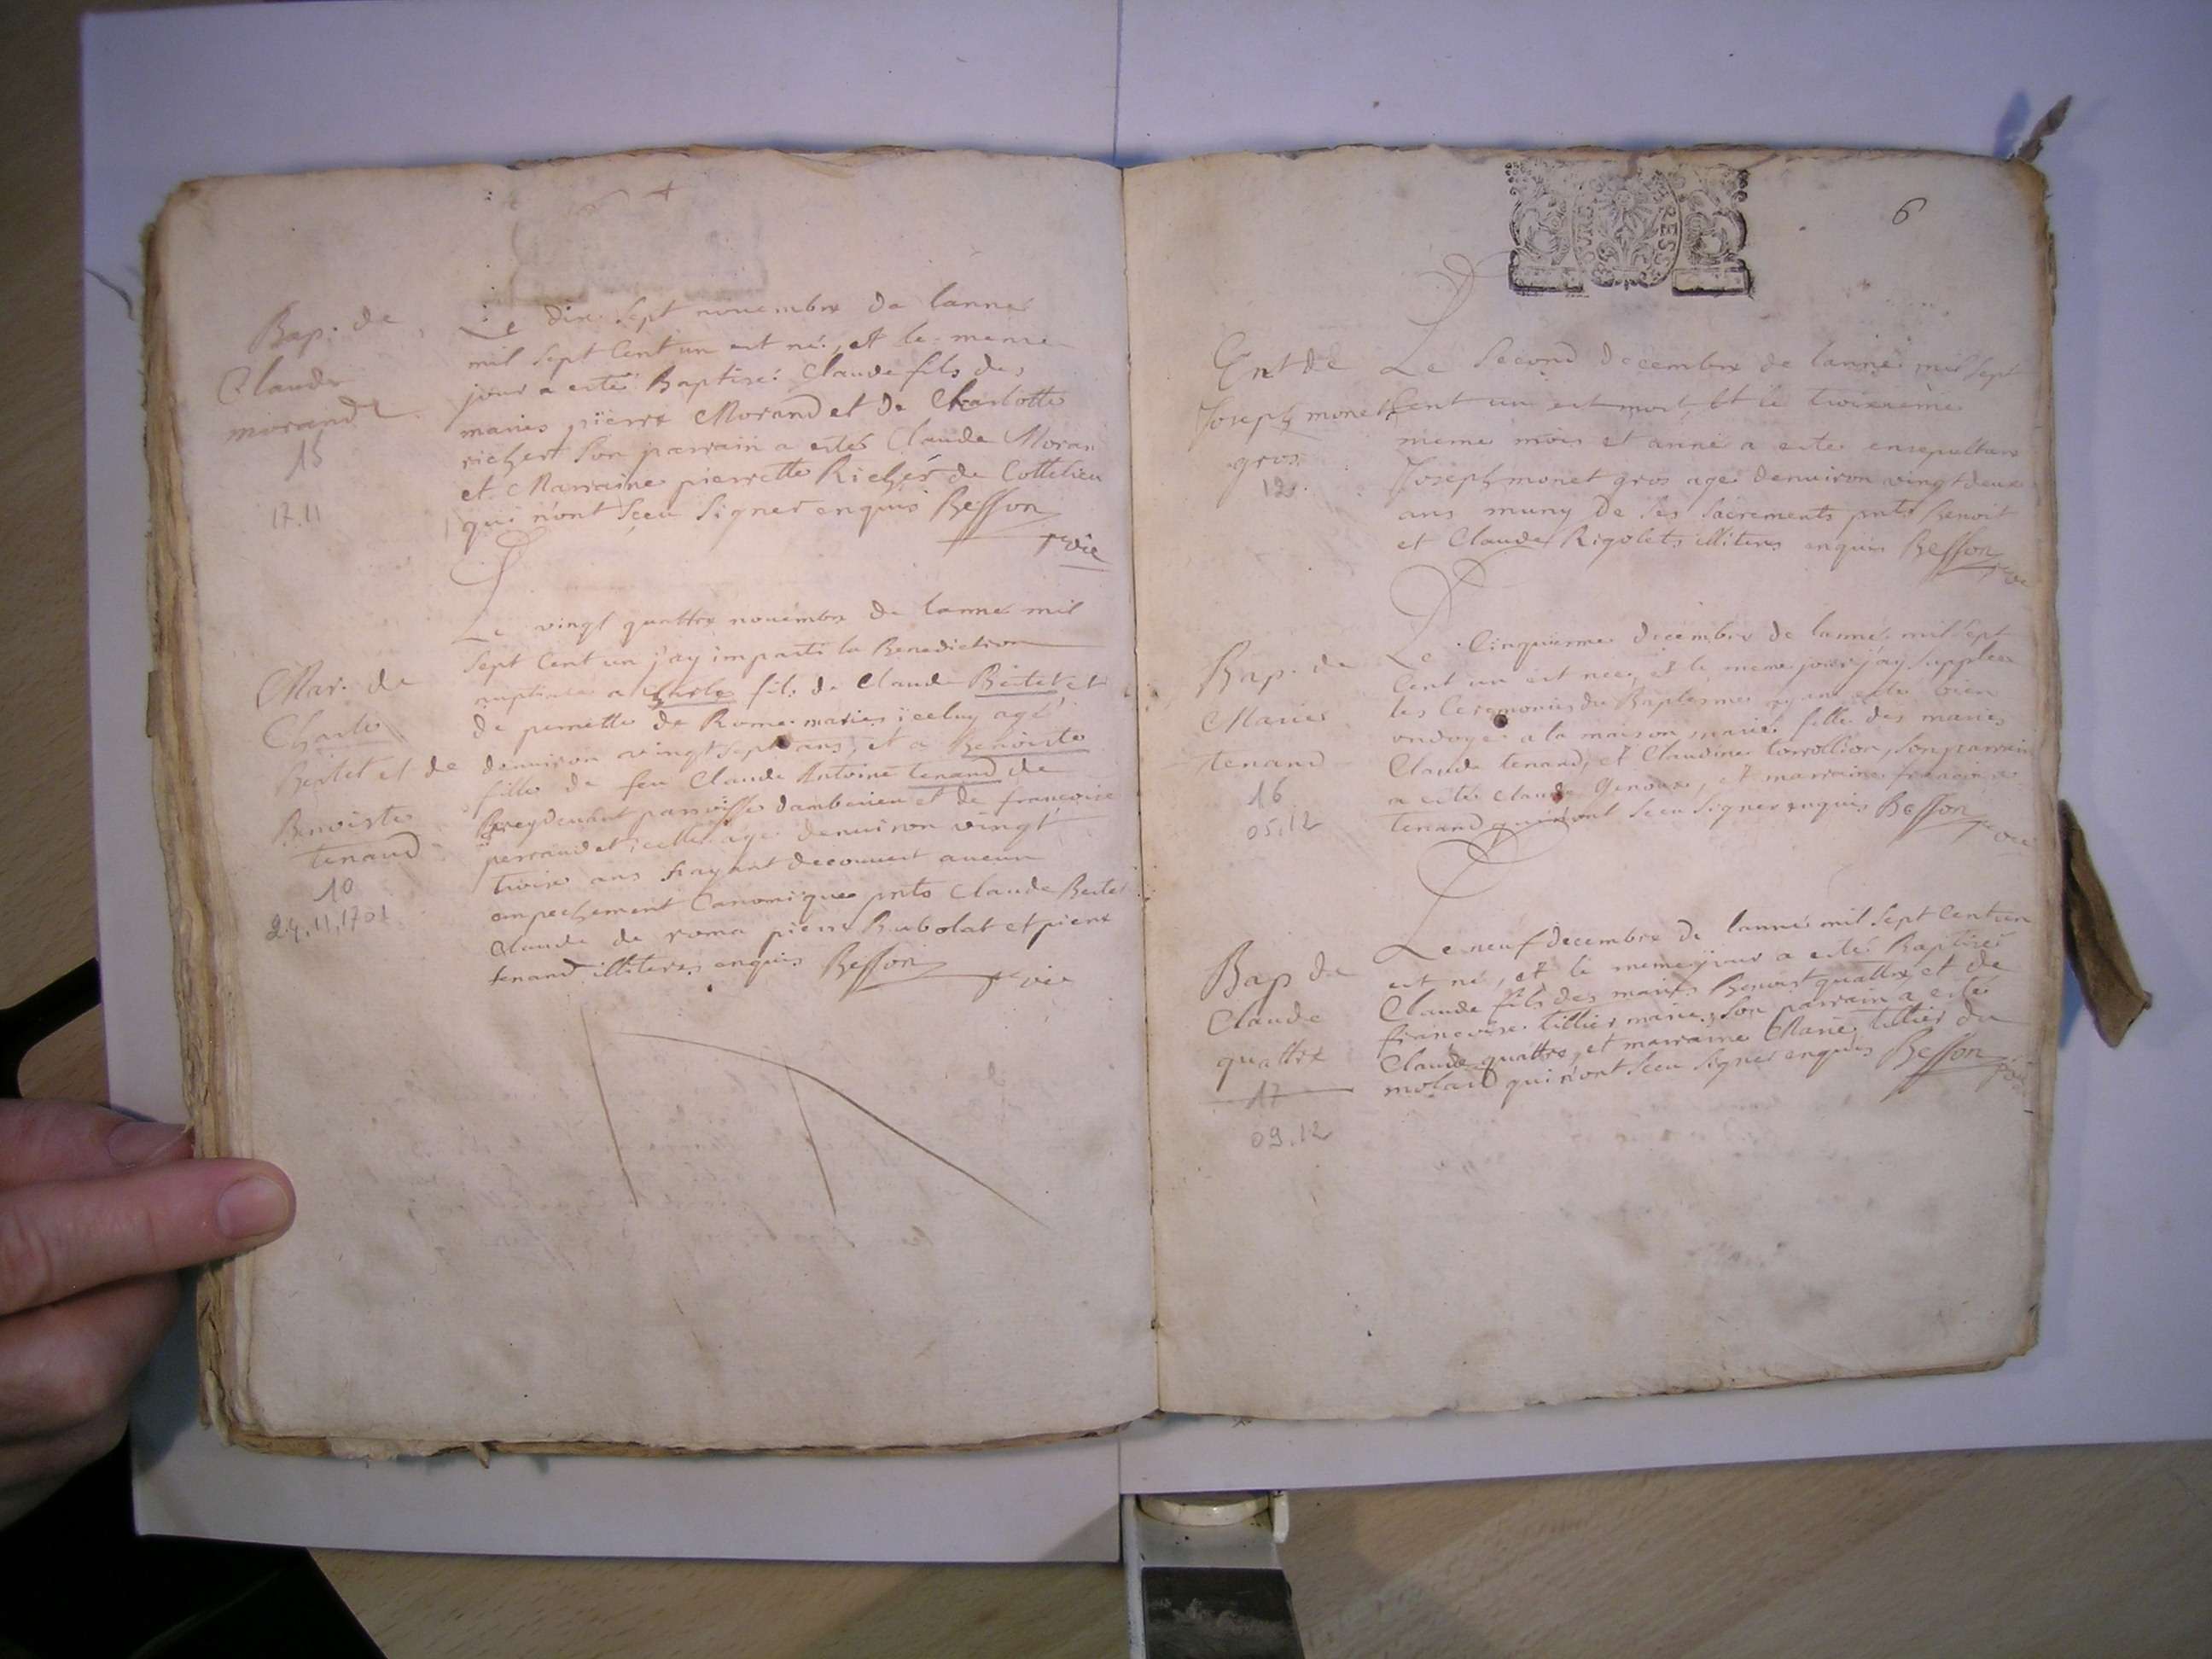 Bap. de
Claude
morand
15
17.11
Le dix sept nouembre de lanneé
mil sept Cent un est né, et le meme
jour a esté Baptisé Claude fils des
mariés pierre Morand et de Charlotte
richert son parrain a esté Claude Moran
et Marraine pierrette Richer de Cottelieu
qui n'ont sceu signer enquis Besson
vic
Mar. de
Charles
Bertet et de
Benoiste
tenand
10
24.11.1701
Le vingt quattre nouembre de lanné mil
sept Cent un j'ay imparti la Benediction
nuptiale a Charle fils de Claude Bertet et
de pernette de Rome mariés iceluy agé
denuiron vingt sept ans, et a Benoiste
fille de feu Claude Antoine tenand de
parroisse dambenieu et de francoise
perraud et icelle agé denuiron vingt
trois ans n'ayant decouuert aucun
empechement Canonique pnts Claude Bertet
Claude de roma pierre Rubolat et pierre
tenand illiteres enquis Besson
vic
6
Ent de
Joseph monet
gros
12
Le second decembre de lanneé mil sept
Cent un est mort, et le troisieme
meme mois et anné a esté ensepulturé
Joseph monet gros agé denuiron vingt deux
ans muny de ses sacrements pnts Benoit
et Claude Rigolets illiteres enquis Besson
Bap. de
Marie
tenand
16
05.12
Le Cinquieme decembre de lanneé mil sept
Cent un est nee, et le meme jour j'ay suppleé
les Ceremonies du Baptesme ayant esté bien
ondoyeé a la maison marie fille des mariés
Claude tenand, et Claudine torrollion, son parrain
a esté claude Genoux, et marraine francoise
tenand qui n'ont sceu signer enquis Besson
Bap de
Claude
quattre
17
09.12
Le neuf decembre de lanneé mil sept Cent un
est né, et le meme jour a esté Baptisé
Claude fils des mariés Benoist quattre et de
francoise tillier mariés, son parrain a esté
Claude quattre, et marraine Marie tillier du
molard qui n'ont sceu signer enquis Besson